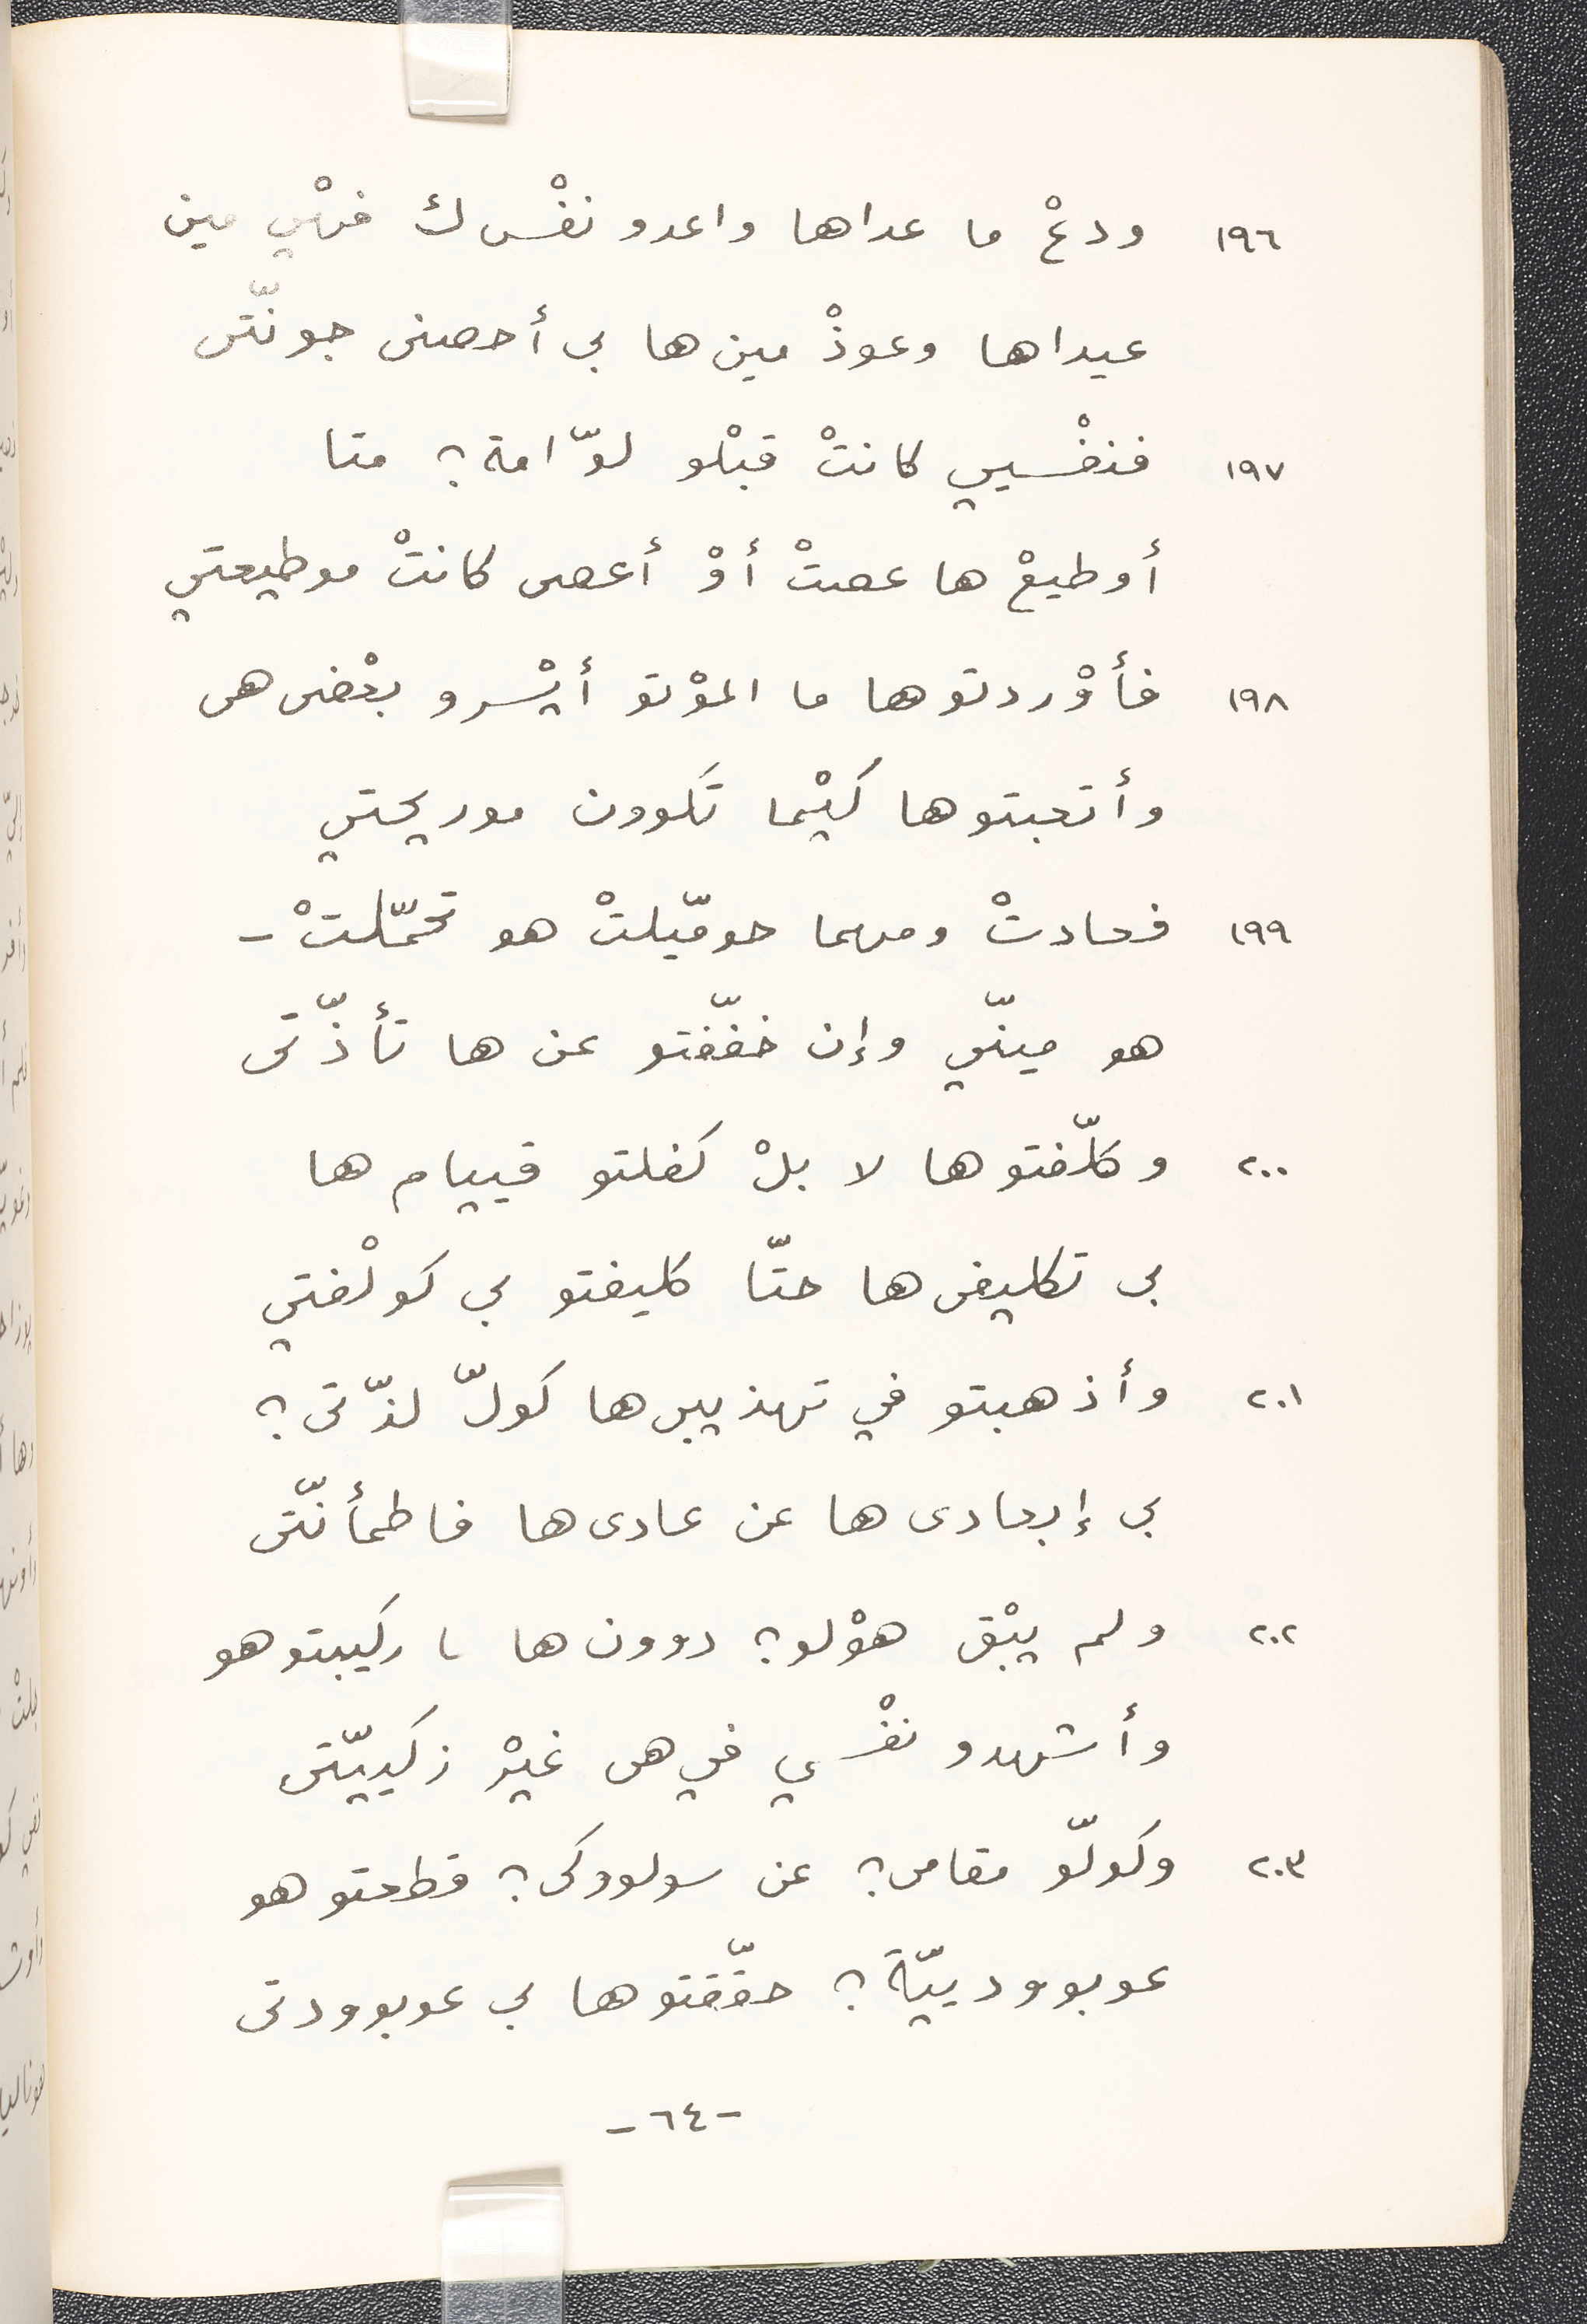 ١٩٦ ودعْ ما عداها واعدو نفْس ك فهْي مين
عيداها وعوذْ مين ها بى أحصنى جونّتى
١٩٧ فنفْسيي كانتْ قبْلو لوّامة؟ متا
أوطيعْ ها عصتْ أوْ أعصى كانتْ موطيعتي
١٩٨ فأوْردتوها ما الموْتو أيْسرو بعْضى هى
وأتعبتوها كيْما تكوون موريحتي
١٩٩ فعادتْ ومهما حومّيلتْ هو تحمّلتْ -
هو مينّي وإن خفّفتو عن ها تأذّتى
٢٠٠ وكلّفتوها لا بلْ كفلتو قييام ها
بى تكليفى ها حتّا كليفتو بى كولْفتي
٢٠١ وأذهبتو في تهذيبى ها كولّ لذّتى؟
بى إبعادى ها عن عادى ها فاطمأنّتى
٢٠٢ ولم يبْق هوْلو؟ دوون ها ما ركيبتوهو
وأشهدو نفْسي في هى غيْر زكييّتى
٢٠٣ وكولّو مقامى؟ عن سولووكى؟ قطعتوهو
عوبووديّة؟ حقّقتوها بى عوبوودتى
-٦٤-